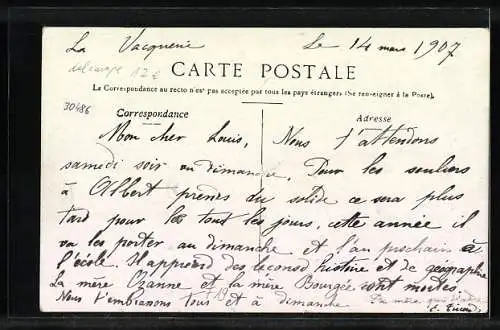 La Vacquerie Le 14 mars 1907
12€
CARTE POSTALE
La Correspondance au recto n'est pas acceptée par tous les pays étrangers (Se renseigner à la Poste).
30486
Correspondance Adresse
Mon cher Louis, Nous t'attendons
samedi soir ou dimanche. Pour les souliers
à Albert prends du solide ce sera plus
tard pour les tout les jours, cette année il
va les porter au dimanche et l'an prochain à
l'école. Il apprend des leçons d histoire et de géographie
La mère Ozanne et la mère Bourgée sont mortes.
Nous t'embrassons tous et à dimanche
Ta mère qui